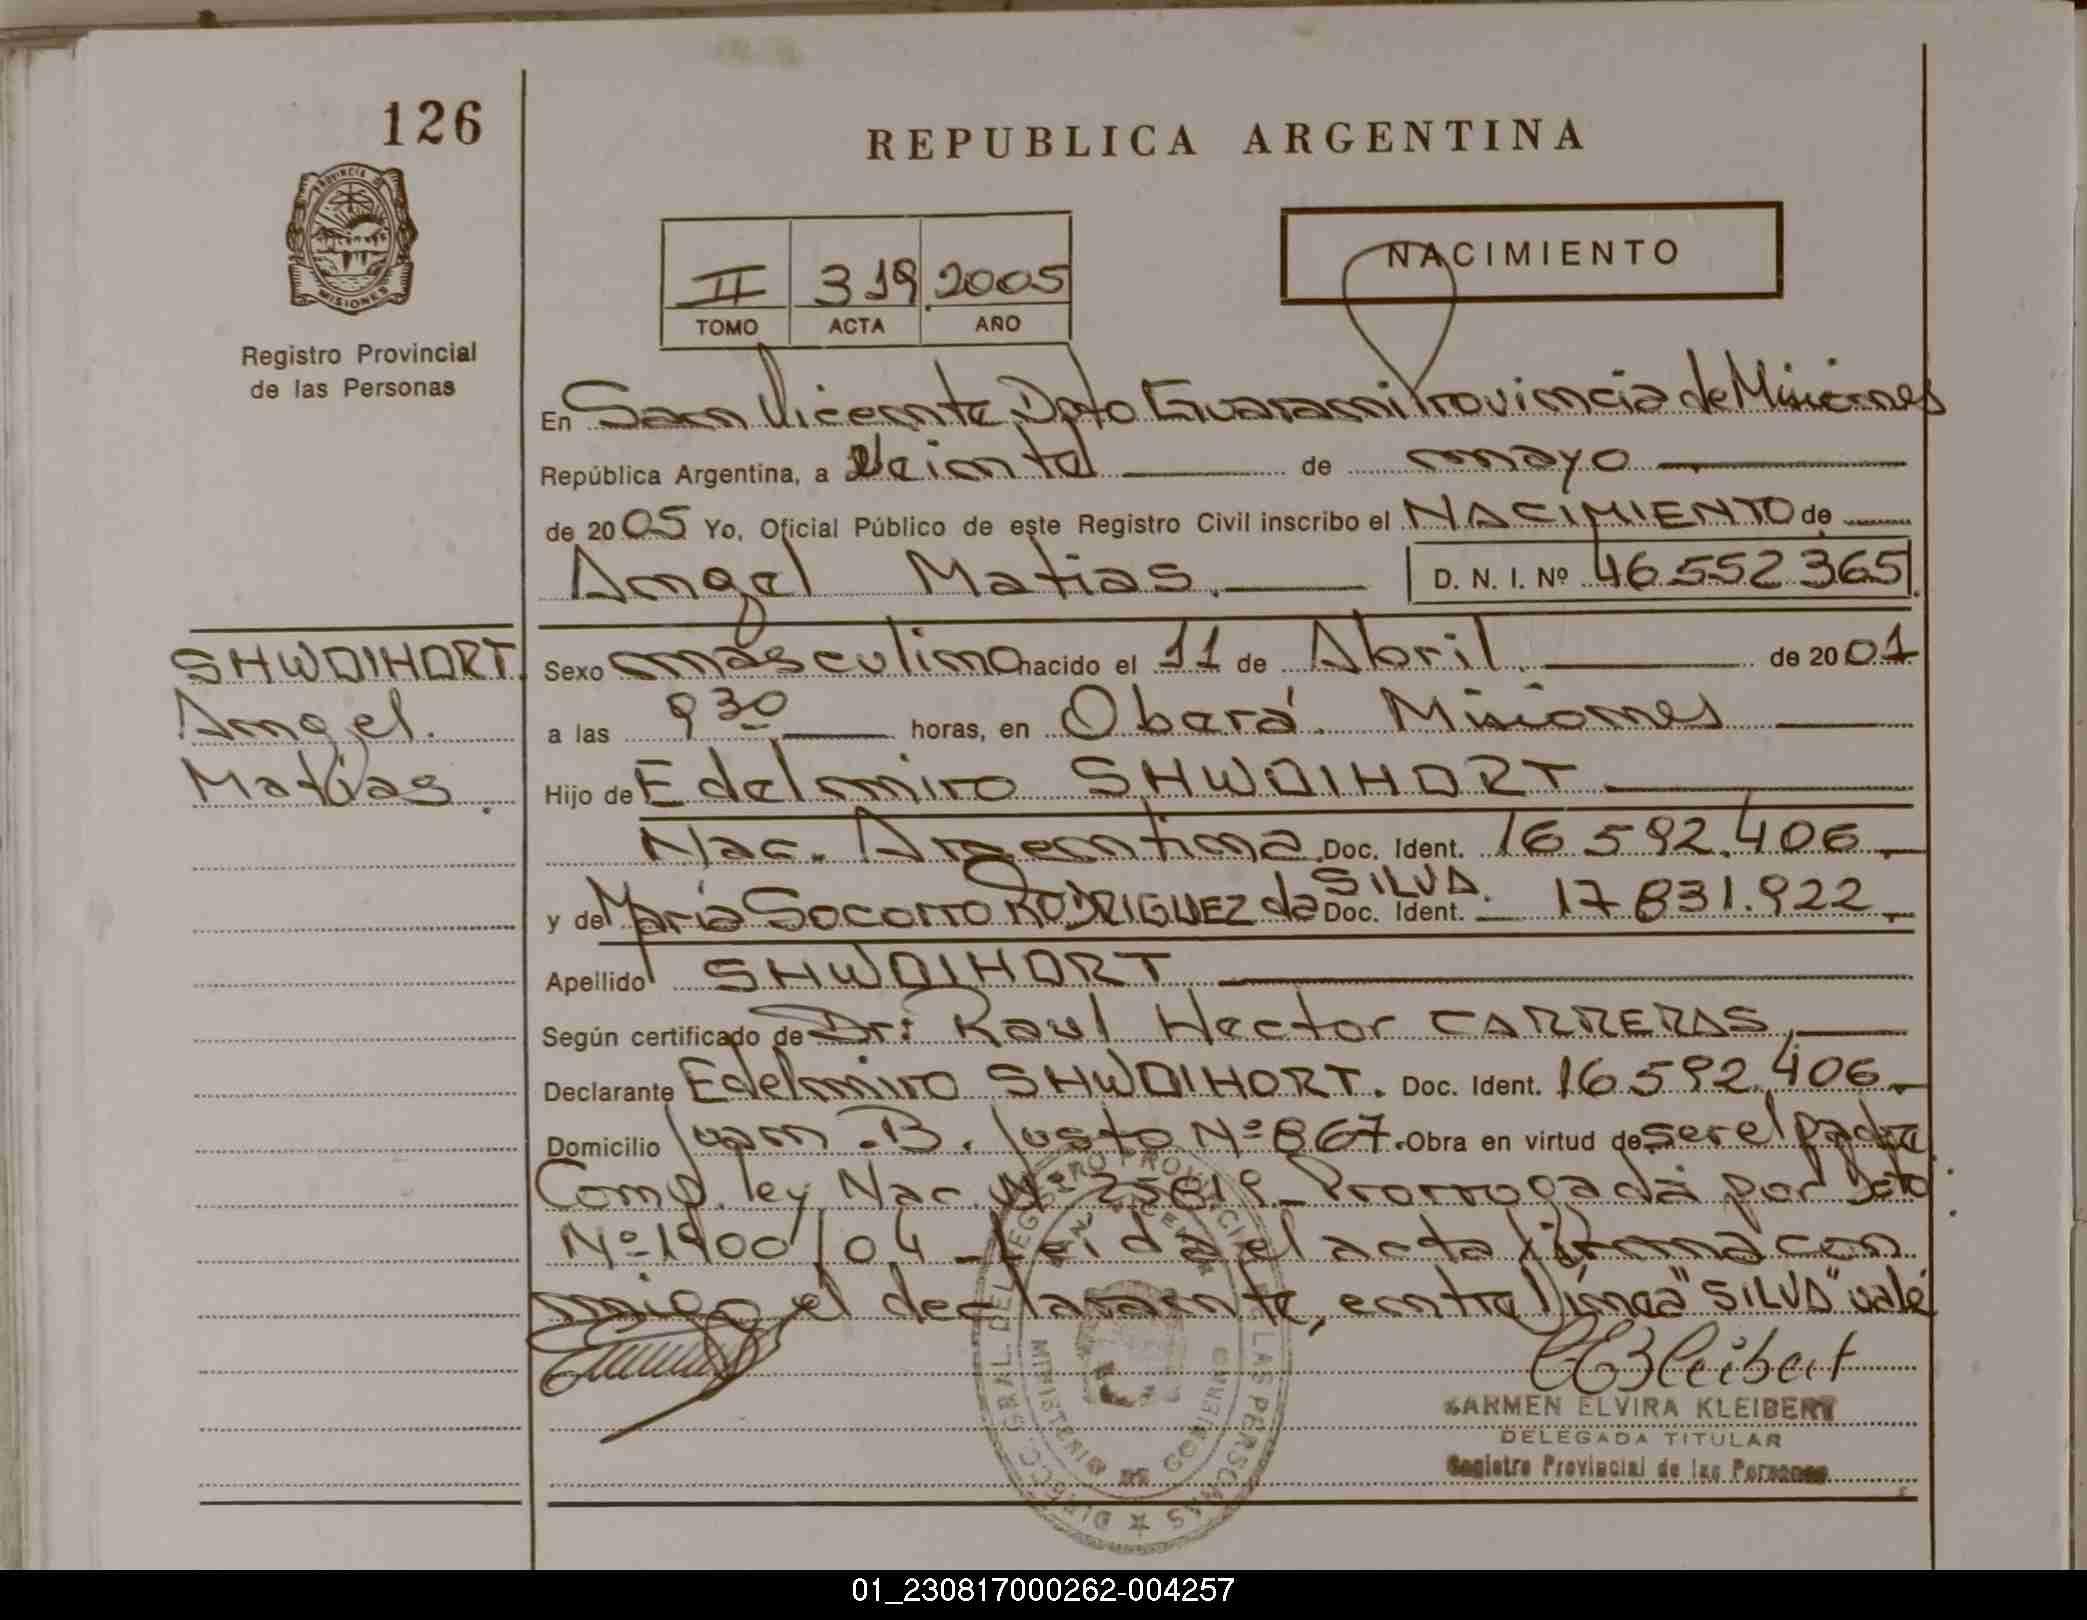 126
REPUBLICA ARGENTINA
PROVINCIA DE
MISIONES
Registro Provincial
de las Personas
II 319 2005
TOMO ACTA AÑO
NACIMIENTO
En San Vicente Dpto Guarani Provincia de Misiones
República Argentina, a Veinte de mayo
de 2005 Yo, Oficial Público de este Registro Civil inscribo el NACIMIENTO de
Angel Matias. D. N. I. Nº 46.552.365
SHWOIHORT.
Angel.
Matias.
Sexo masculino nacido el 11 de Abril de 2001
a las 9 30 horas, en Oberá. Misiones
Hijo de Edelmiro SHWOIHORT
Nac. Argentina. Doc. Ident. 16.592.406
SILVA.
y de Maria Socorro RODRIGUEZ da Doc. Ident. 17.831.922
Apellido SHWOIHORT
Según certificado de Dr: Raul Hector CARRERAS
Declarante Edelmiro SHWOIHORT. Doc. Ident. 16.592.406
Domicilio Juan .B. Justo Nº 867. Obra en virtud de ser el padre
Comp. ley Nac. Nº 25819 Prorrogada por Dcto
Nº 1900/04 Leida el acta firma con
migo el declarante, entre línea "SILVA" vale
CEKleibert
CARMEN ELVIRA KLEIBERT
DELEGADA TITULAR
Registro Provincial de las Personas
DIRECC. GRAL. DEL REGISTRO PROVINCIAL DE LAS PERSONAS
SAN VICENTE
MINISTERIO DE GOBIERNO
01_230817000262-004257